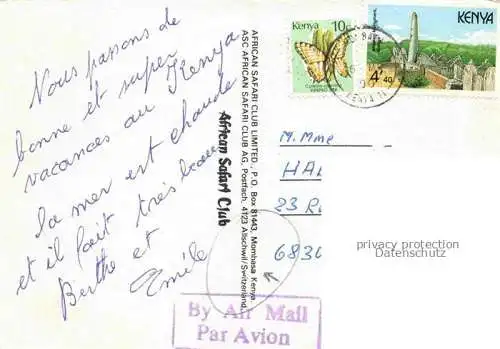 Nous passons de
bonne et super
vacances au Kenya
la mer est chaude
et il fait très beau
Berthe et
Emile
AFRICAN SAFARI CLUB LIMITED., P.O. Box 81443, Mombasa Kenya
ASC AFRICAN SAFARI CLUB AG, Postfach, 4123 Allschwil/Switzerland
African Safari Club
Kenya 10c
KENYA
4/40
M. Mme
HAL
23 R
6830
privacy protection
Datenschutz
By Air Mail
Par Avion